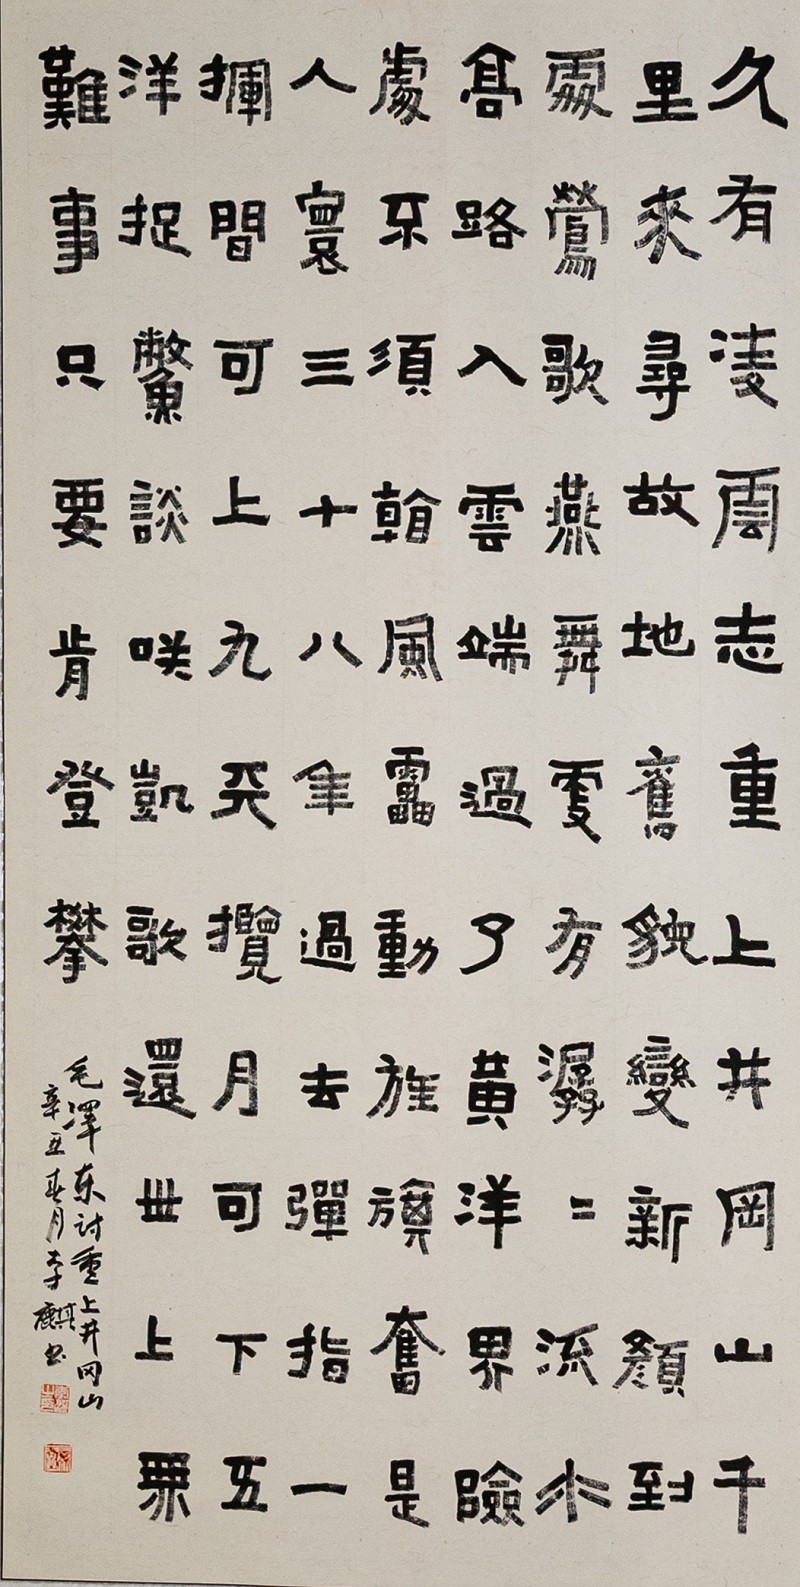 久有凌雲志重上井岡山千
里來尋故地舊貌變新顏到
處鶯歌燕舞更有潺〻流水
髙路入雲端過了黃洋界險
處不須看風雷動旌旗奮是
人寰三十八年過去彈指一
揮間可上九天攬月可下五
洋捉鱉談咲凱歌還世上無
難事只要肯登攀
毛澤东诗重上井冈山
辛丑春月李麒书